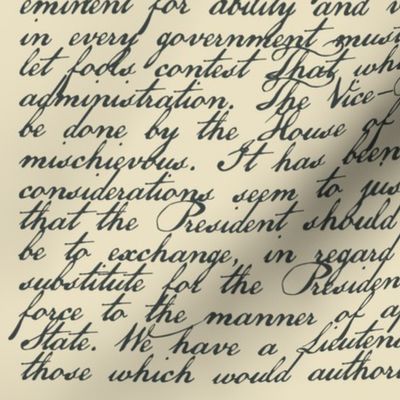 eminent for ability and
in every government must
let fools contest That
administration. The Vice-
be done by the House of
mischievous. It has been
considerations seem to
that the President should
be to exchange, in regard
substitute for the
force to the manner of
State. We have a
those which would